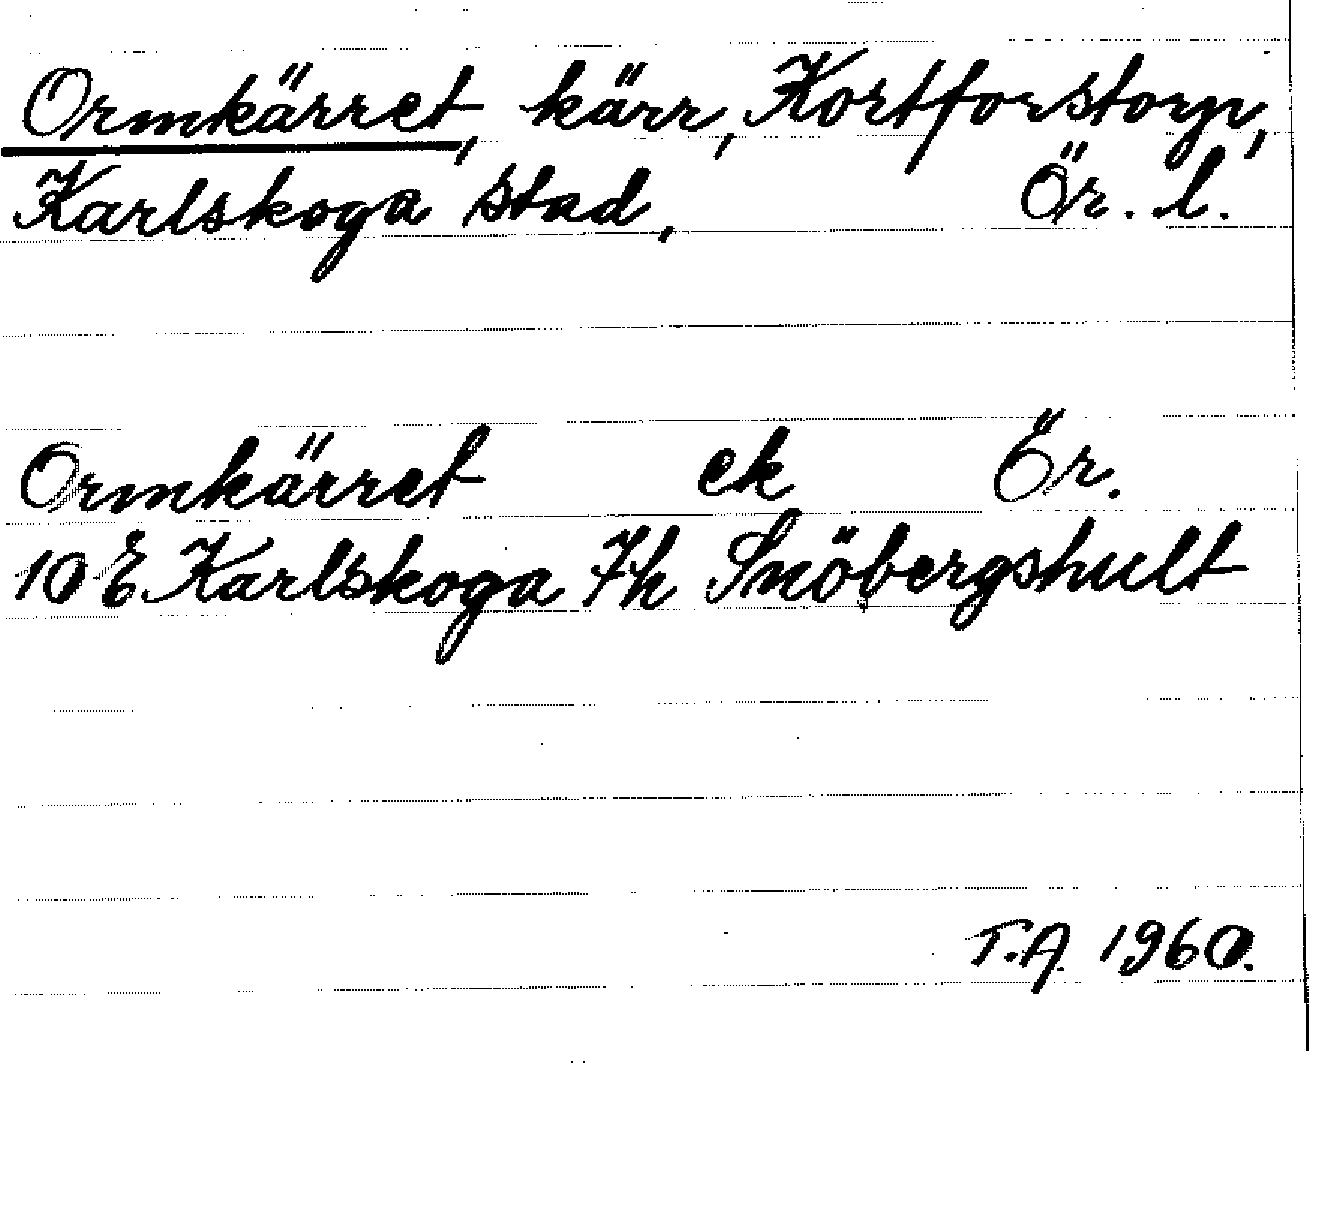 Ormkärret, kärr, Kortforstorp,
Karlskoga stad, Ör. l.
Ormkärret ek Ör.
10 E Karlskoga Fh Snöbergshult
T.A. 1960.